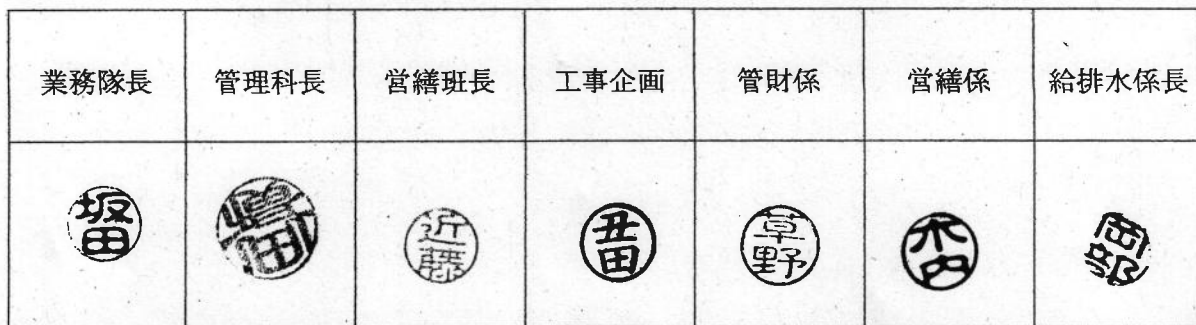 業務隊長 管理科長 営繕班長 工事企画 管財係 営繕係 給排水係長
坂田 嶋田 近藤 丑田 草野 木内 岡部